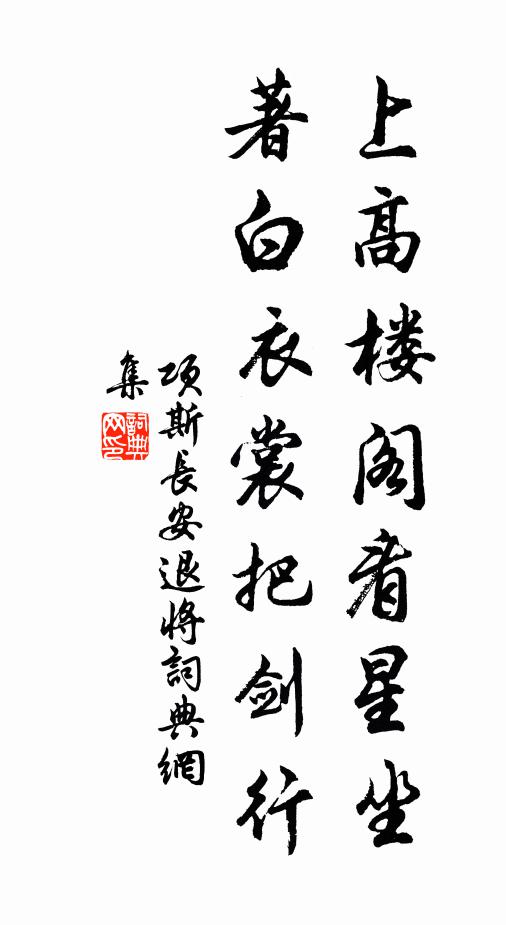 上高楼阁看星坐
著白衣裳把剑行
项斯長安退将詞典網
集
詞典
网印